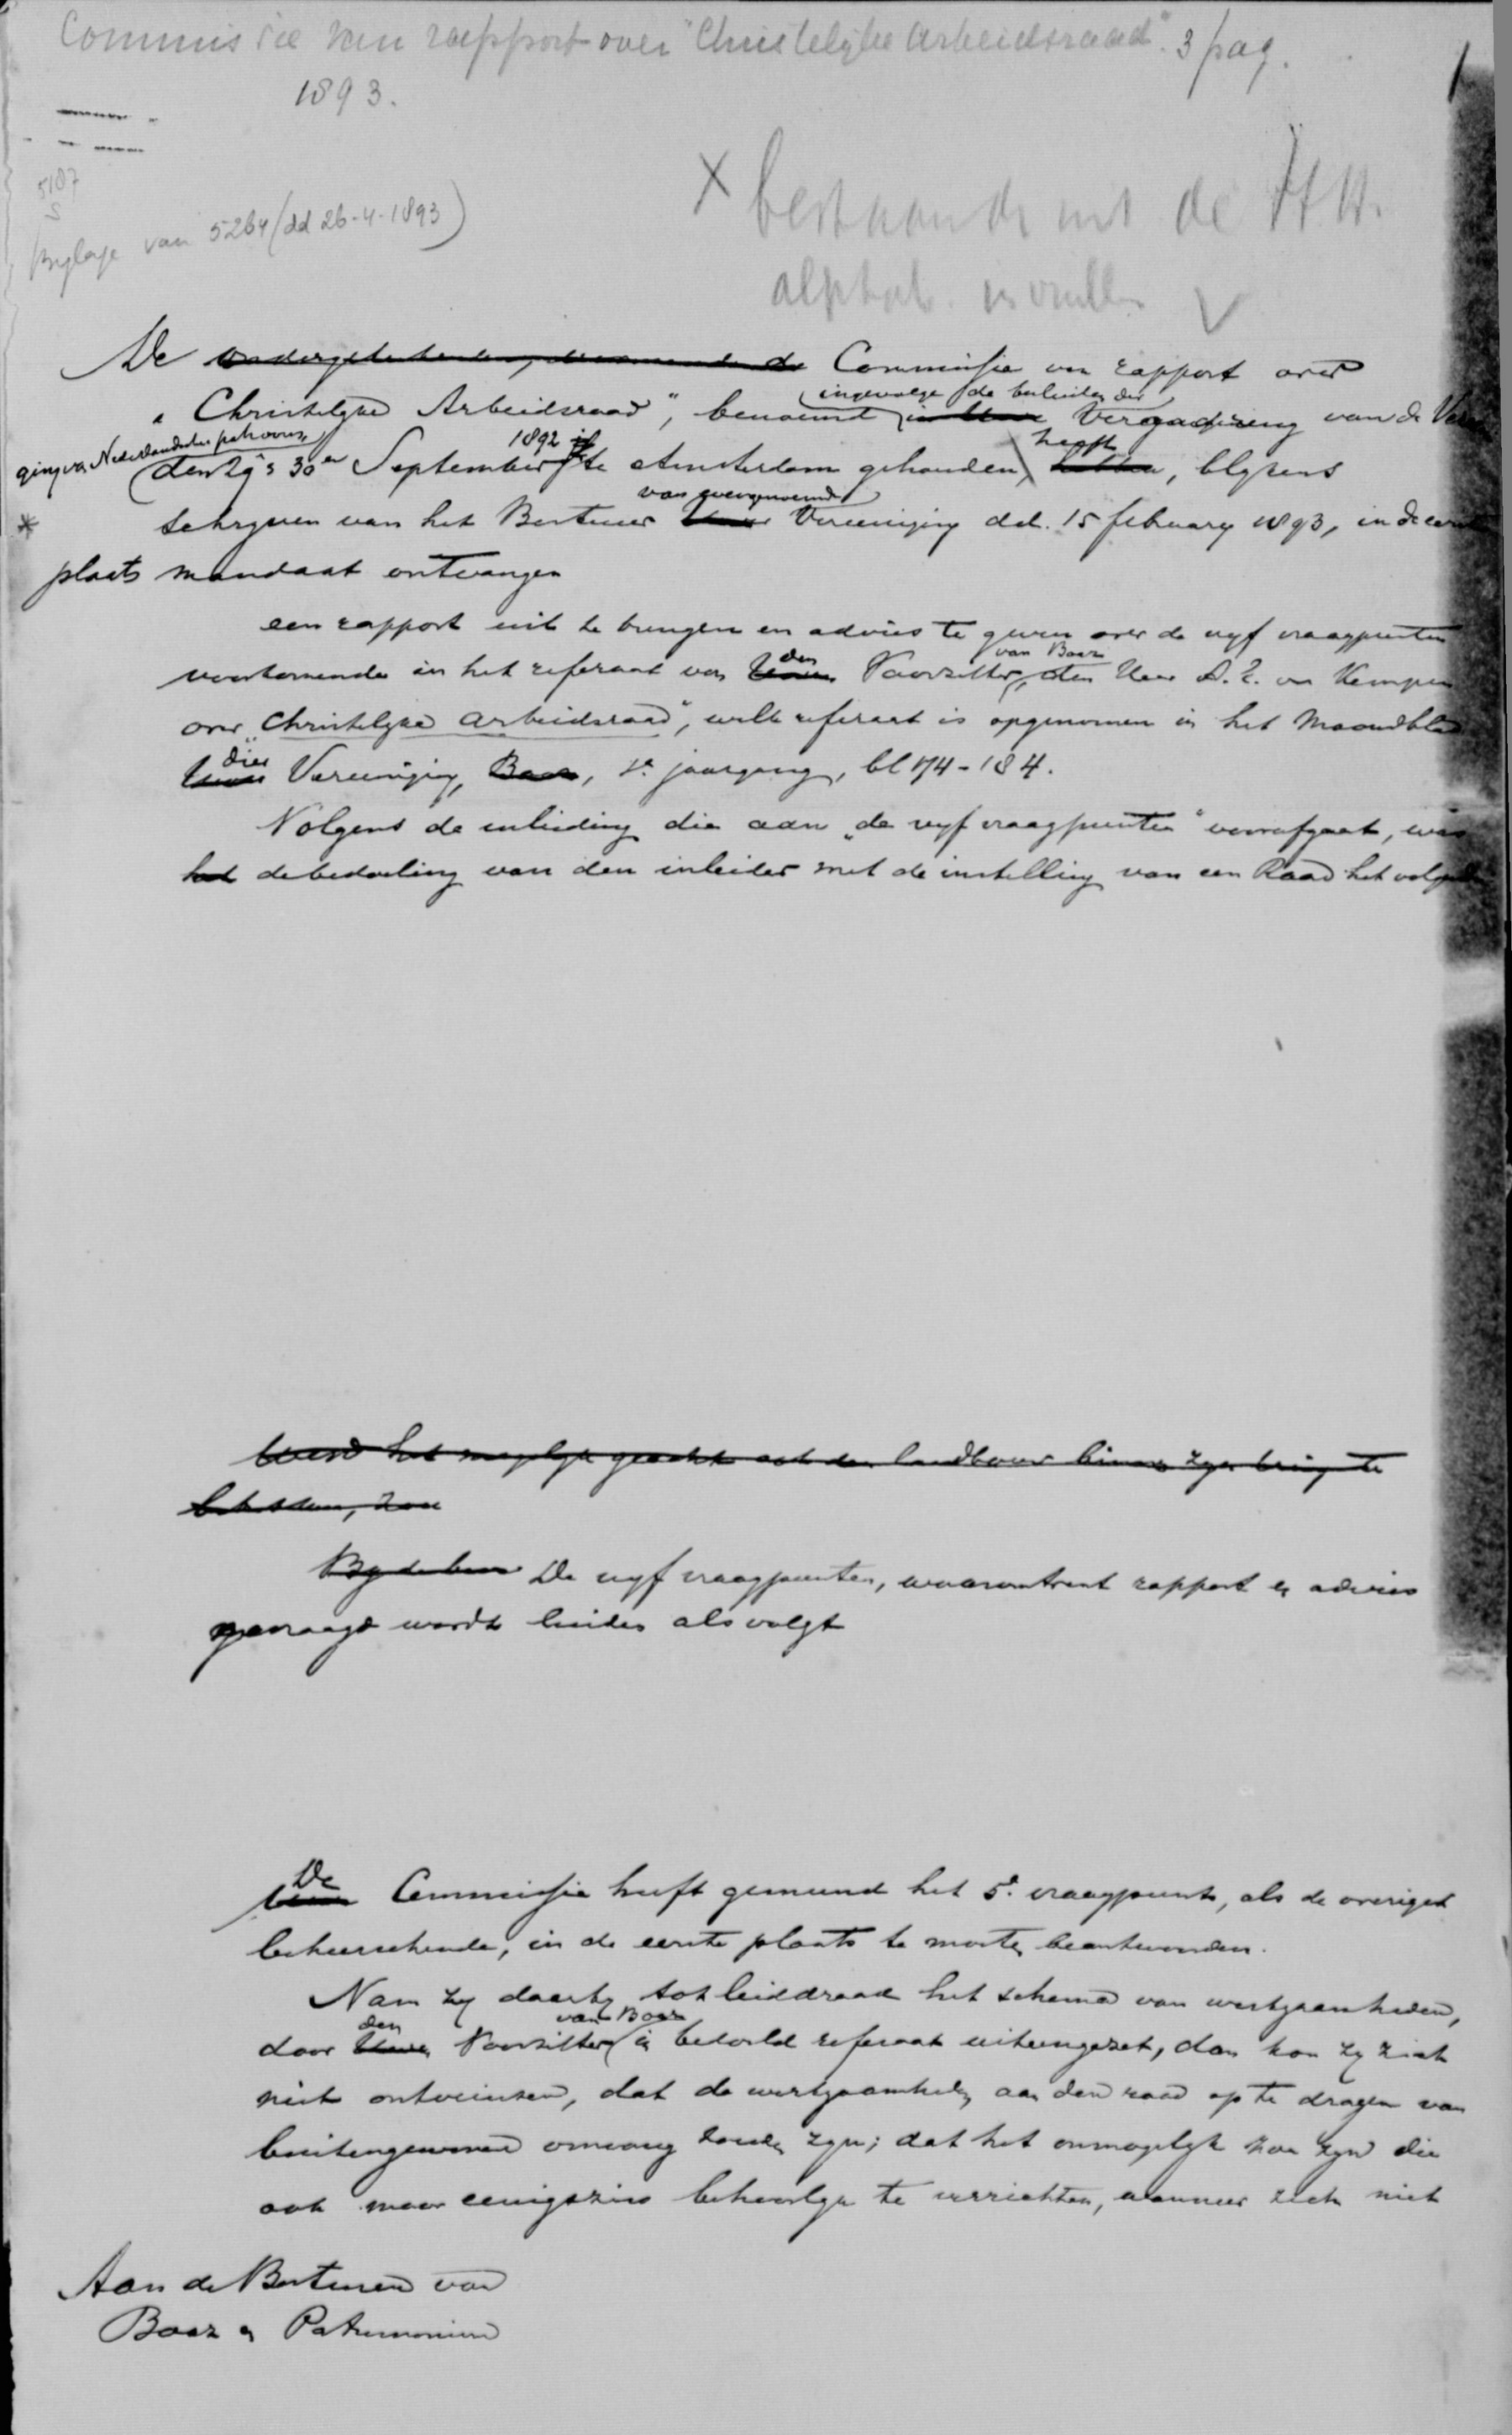 Commissie van rapport over "Christelijke Arbeidsraad". 3 pag.
1893.
1
5187
S
Bijlage van 5264 (dd 26-4-1893)
X bestaande uit de HH.
alphab. in vullen V
De ondergeteekenden, de Commissie van rapport over
"Christelyke Arbeidsraad", benoemd ingevolge de besluiten der in Uwe Vergadering van de Veree
ging van Nederlandsche patroons
den 29 & 30en September 1892 te Amsterdam gehouden, heeft hebben, blykens
* schryven van het Bestuur van evengenoemde Uwer Vereeniging dd. 15 february 1893, in de eerste
plaats mandaat ontvangen
een rapport uit te brengen en advies te geven over de vyf vraagpunten
voorkomende in het referaat van den Uwen Voorzitter van Boaz, den Heer D. L. van Kempen
over "Christelyke Arbeidsraad", welk referaat is opgenomen in het Maandblad
dier Uwer Vereeniging, Boaz, 1e jaargang, bl 174-184.
Volgens de inleiding die aan "de vyf vraagpunten" voorafgaat, was
het de bedoeling van den inleider met de instelling van een Raad het volgende
Werd het mogelyk geacht ook den landbouw binnen zyn kring te
betrekken, zou
By de De vyf vraagpunten, waaromtrent rapport en advies
gevraagd wordt luiden als volgt
De Uwe Commissie heeft gemeend het 5e vraagpunt, als de overigen
beheerschende, in de eerste plaats te moeten beantwoorden.
Nam zy daarby tot leiddraad het schema van werkzaamheden,
door den Uwen Voorzitter van Boaz in bedoeld referaat uiteengezet, dan kon zy zich
niet ontveinzen, dat de werkzaamheden aan den raad op te dragen van
buitengewonen omvang zouden zyn; dat het onmogelyk zou zyn die
ook maar eenigszins behoorlyk te verrichten, wanneer zich niet
Aan de Besturen van
Boaz en Patrimonium